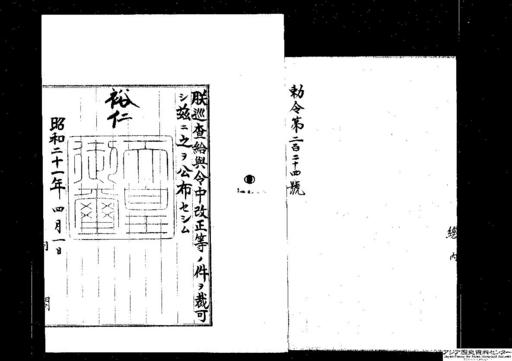 勅令第二百二十四號
朕巡査給與令中改正等ノ件ヲ裁可
シ茲ニ之ヲ公布セシム
裕仁
天皇
御璽
昭和二十一年四月一日
總
内
閣
アジア歴史資料センター